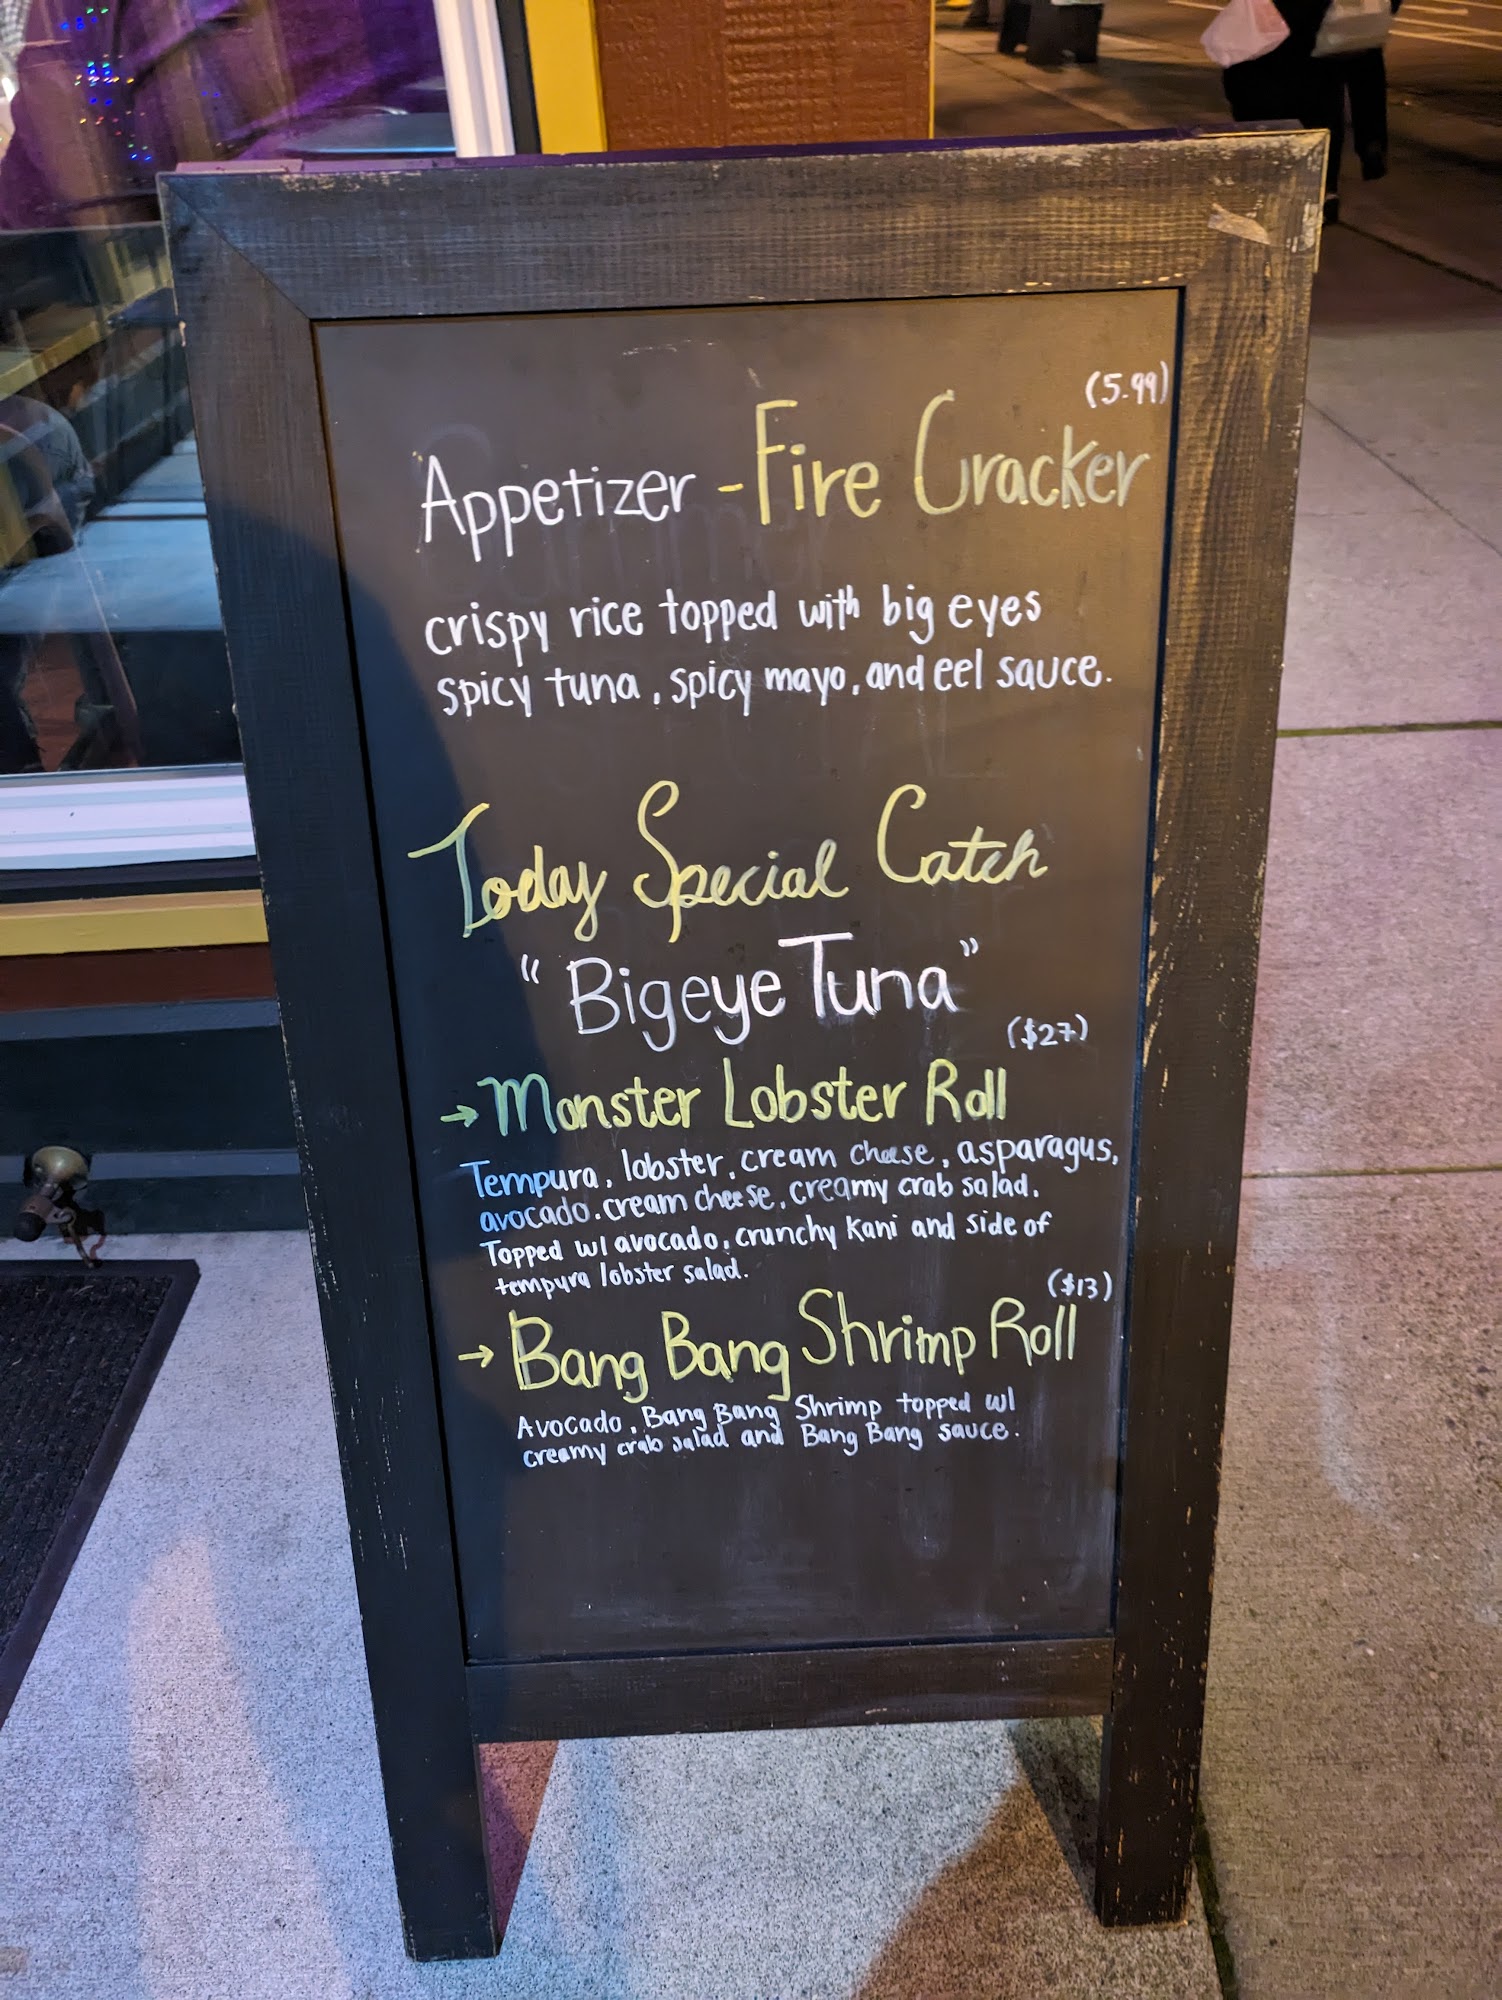 (5.99)
Appetizer - Fire Cracker
crispy rice topped with big eyes
spicy tuna, spicy mayo, and eel sauce.
Today Special Catch
"Bigeye Tuna"
($27)
→ Monster Lobster Roll
Tempura, lobster, cream cheese, asparagus,
avocado. cream cheese, creamy crab salad.
Topped w/ avocado, crunchy kani and side of
tempura lobster salad.
($13)
→ Bang Bang Shrimp Roll
Avocado, Bang Bang Shrimp topped w/
creamy crab salad and Bang Bang sauce.